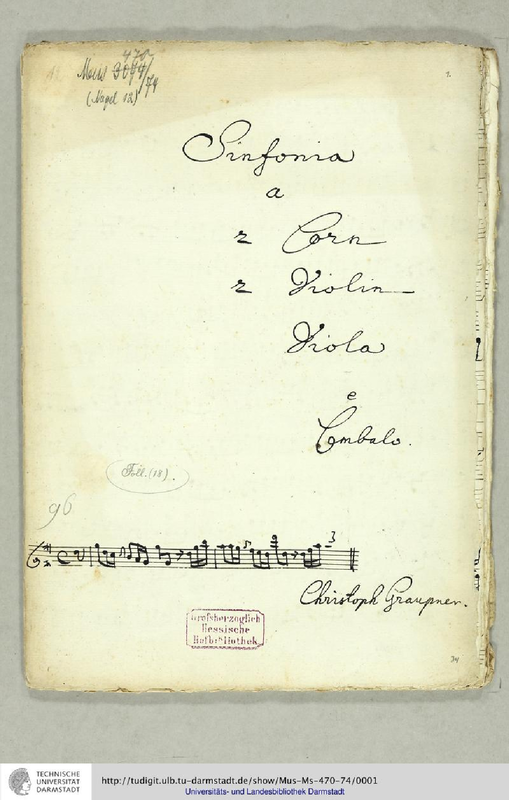 Mus 3094/79
470
(Nagel 12)
1.
Sinfonia
a
2 Corn
2 Violin
Viola
e
Cembalo.
Foll. (18).
96
3
Christoph Graupner.
Großherzoglich
Hessische
Hofbibliothek
TECHNISCHE
UNIVERSITÄT
DARMSTADT
http://tudigit.ulb.tu-darmstadt.de/show/Mus-Ms-470-74/0001
Universitäts- und Landesbibliothek Darmstadt